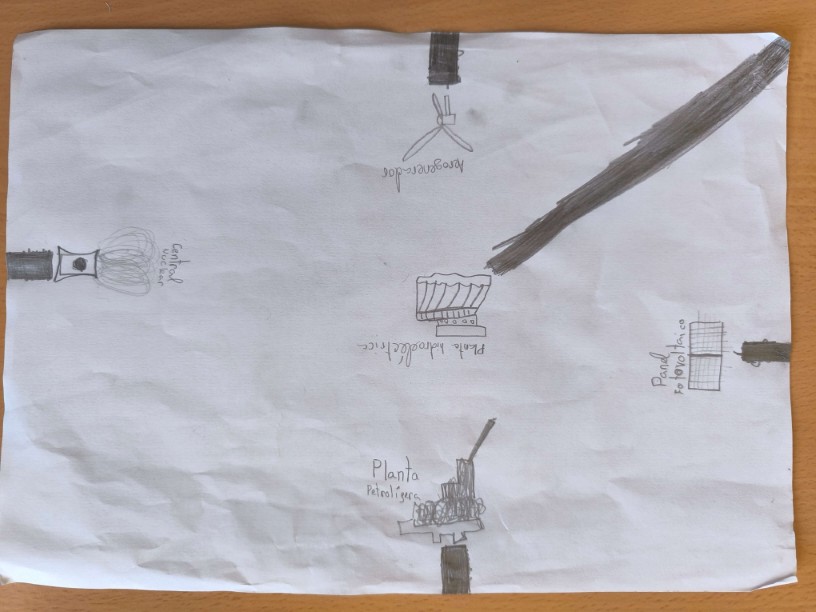 Aerogenerador
Central
nuclear
Planta hidroeléctrica
Panel
Fotovoltaico
Planta
Petrolifera